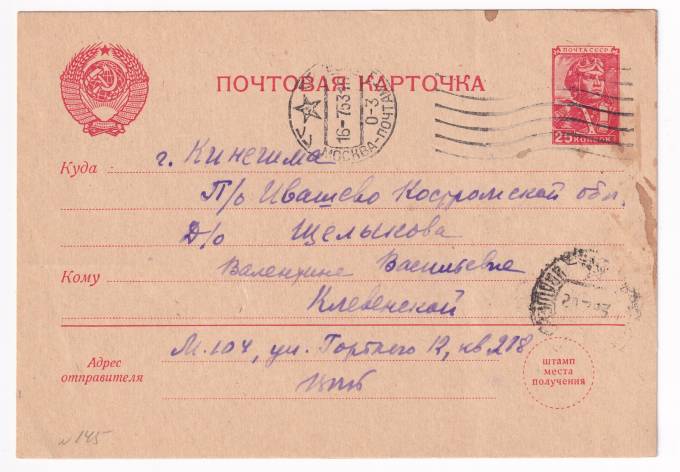 ПОЧТОВАЯ КАРТОЧКА
ПОЧТА СССР
25 КОПЕЕК
16-7 53
0-3
МОСКВА-ПОЧТАМТ
Куда
г. Кинешма
П/о Ивашево Костромской обл.
Д/о Щелыкова
Кому
Валентине Васильевне
Клевенской
Адрес отправителя
М-104, ул. Горького 12, кв 218
штамп
места
получения
№ 145